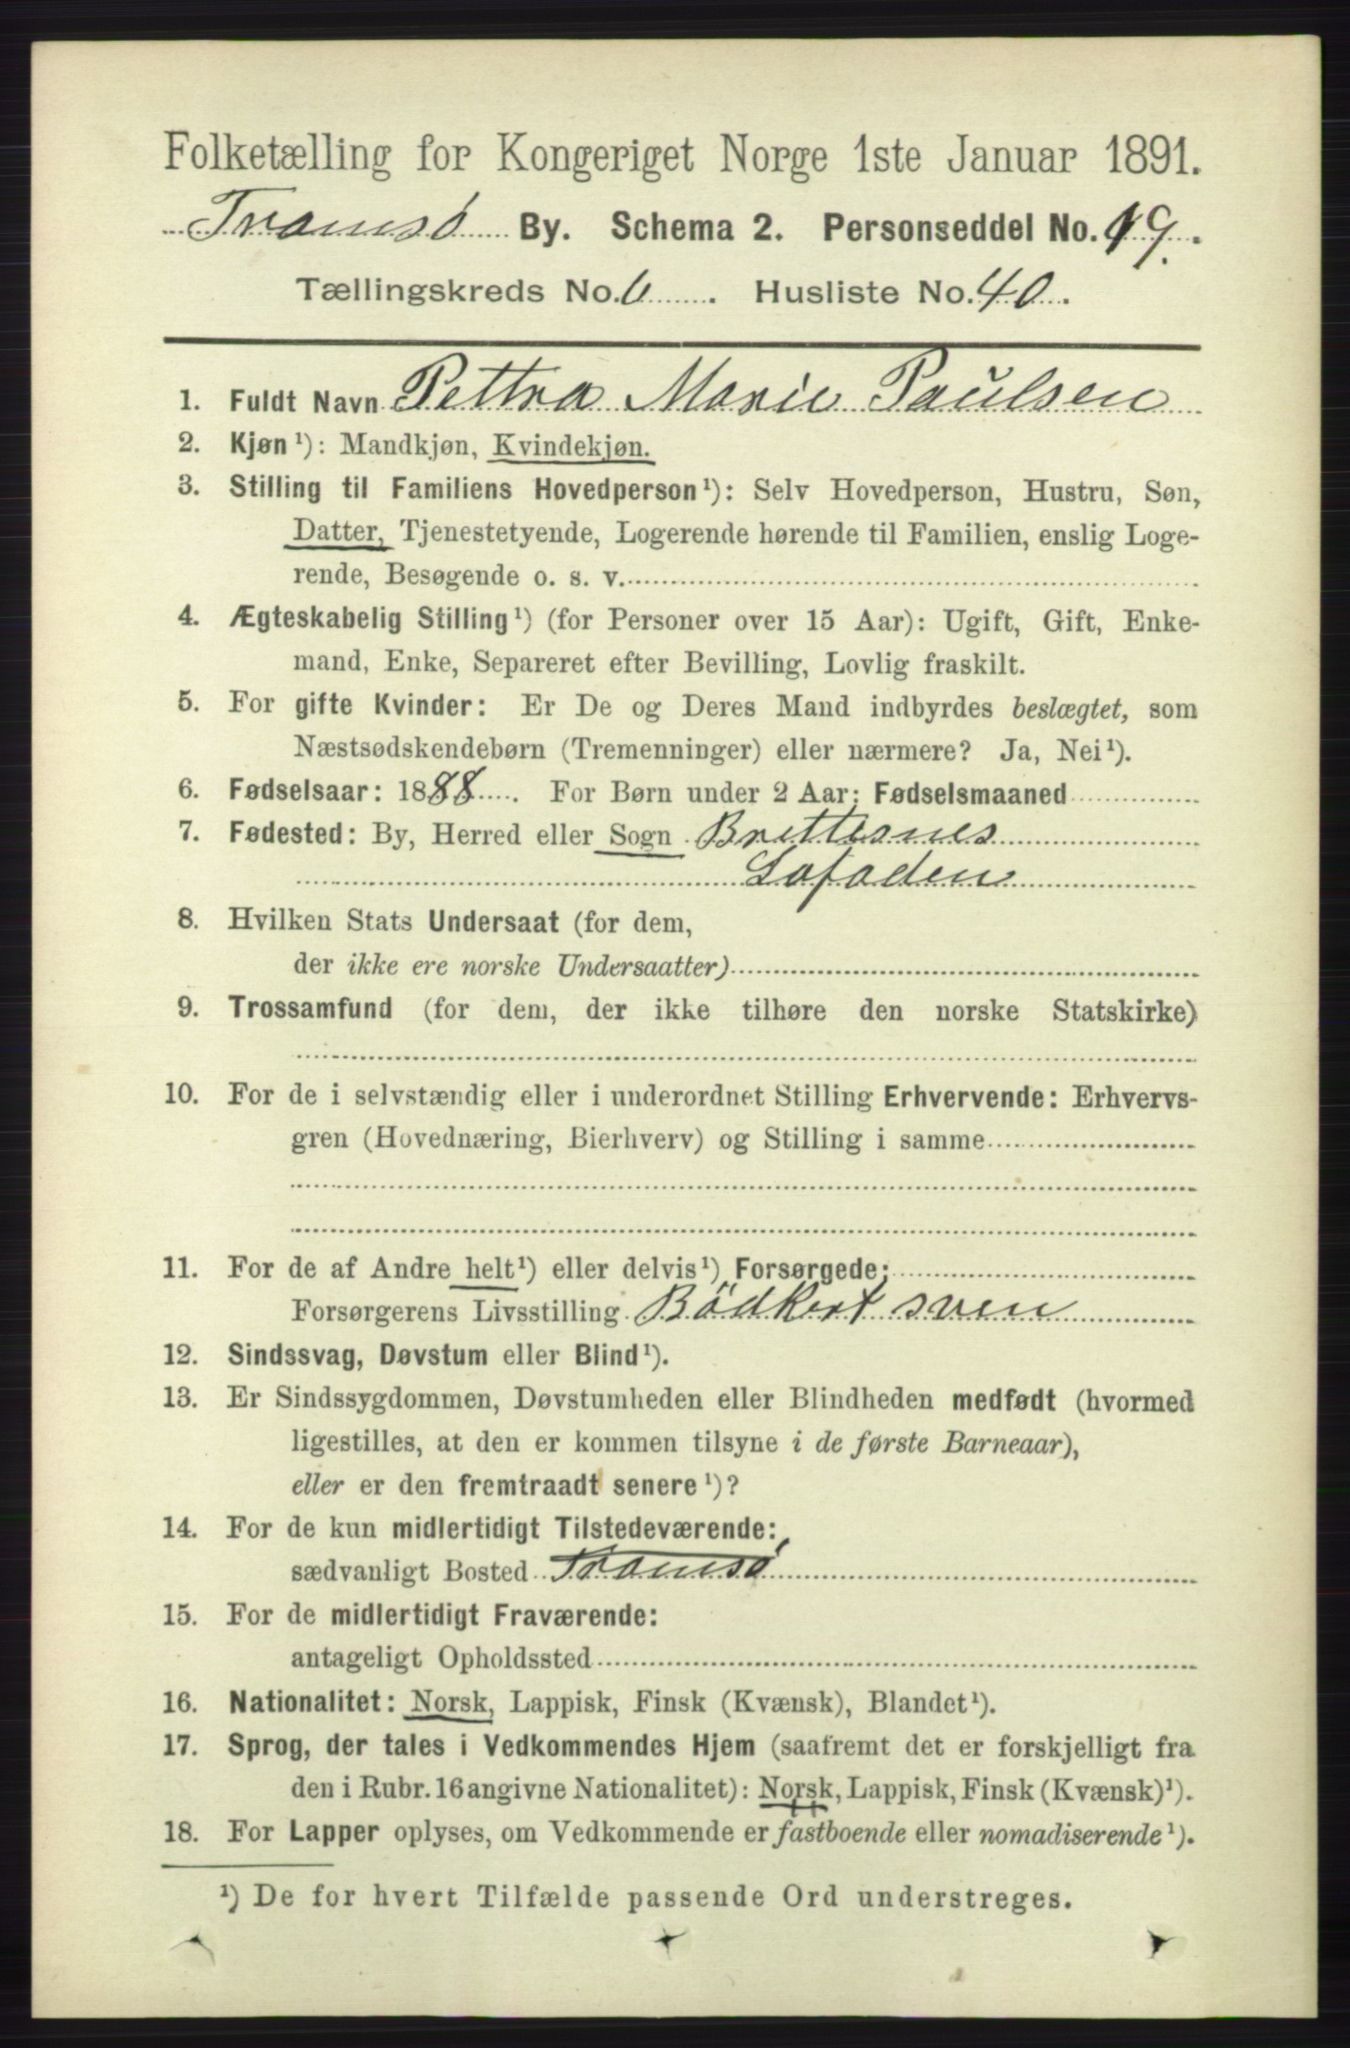 Folketælling for Kongeriget Norge 1ste Januar 1891.
Tromsø By. Schema 2. Personseddel No. 19.
Tællingskreds No. 6. Husliste No. 40.
1. Fuldt Navn Pettra Marie Paulsen
2. Kjøn ¹): Mandkjøn, Kvindekjøn.
3. Stilling til Familiens Hovedperson ¹): Selv Hovedperson, Hustru, Søn,
Datter, Tjenestetyende, Logerende hørende til Familien, enslig Loge-
rende, Besøgende o. s. v.
4. Ægteskabelig Stilling ¹) (for Personer over 15 Aar): Ugift, Gift, Enke-
mand, Enke, Separeret efter Bevilling, Lovlig fraskilt.
5. For gifte Kvinder: Er De og Deres Mand indbyrdes beslægtet, som
Næstsødskendebørn (Tremenninger) eller nærmere? Ja, Nei ¹).
6. Fødselsaar: 1888. For Børn under 2 Aar: Fødselsmaaned
7. Fødested: By, Herred eller Sogn Brettesnes
Lofoden
8. Hvilken Stats Undersaat (for dem,
der ikke ere norske Undersaatter)
9. Trossamfund (for dem, der ikke tilhøre den norske Statskirke)
10. For de i selvstændig eller i underordnet Stilling Erhvervende: Erhvervs-
gren (Hovednæring, Bierhverv) og Stilling i samme
11. For de af Andre helt ¹) eller delvis ¹) Forsørgede:
Forsørgerens Livsstilling Bødkert sven
12. Sindssvag, Døvstum eller Blind ¹).
13. Er Sindssygdommen, Døvstumheden eller Blindheden medfødt (hvormed
ligestilles, at den er kommen tilsyne i de første Barneaar),
eller er den fremtraadt senere ¹)?
14. For de kun midlertidigt Tilstedeværende:
sædvanligt Bosted Tromsø
15. For de midlertidigt Fraværende:
antageligt Opholdssted
16. Nationalitet: Norsk, Lappisk, Finsk (Kvænsk), Blandet ¹).
17. Sprog, der tales i Vedkommendes Hjem (saafremt det er forskjelligt fra
den i Rubr. 16 angivne Nationalitet): Norsk, Lappisk, Finsk (Kvænsk) ¹).
18. For Lapper oplyses, om Vedkommende er fastboende eller nomadiserende ¹).
¹) De for hvert Tilfælde passende Ord understreges.